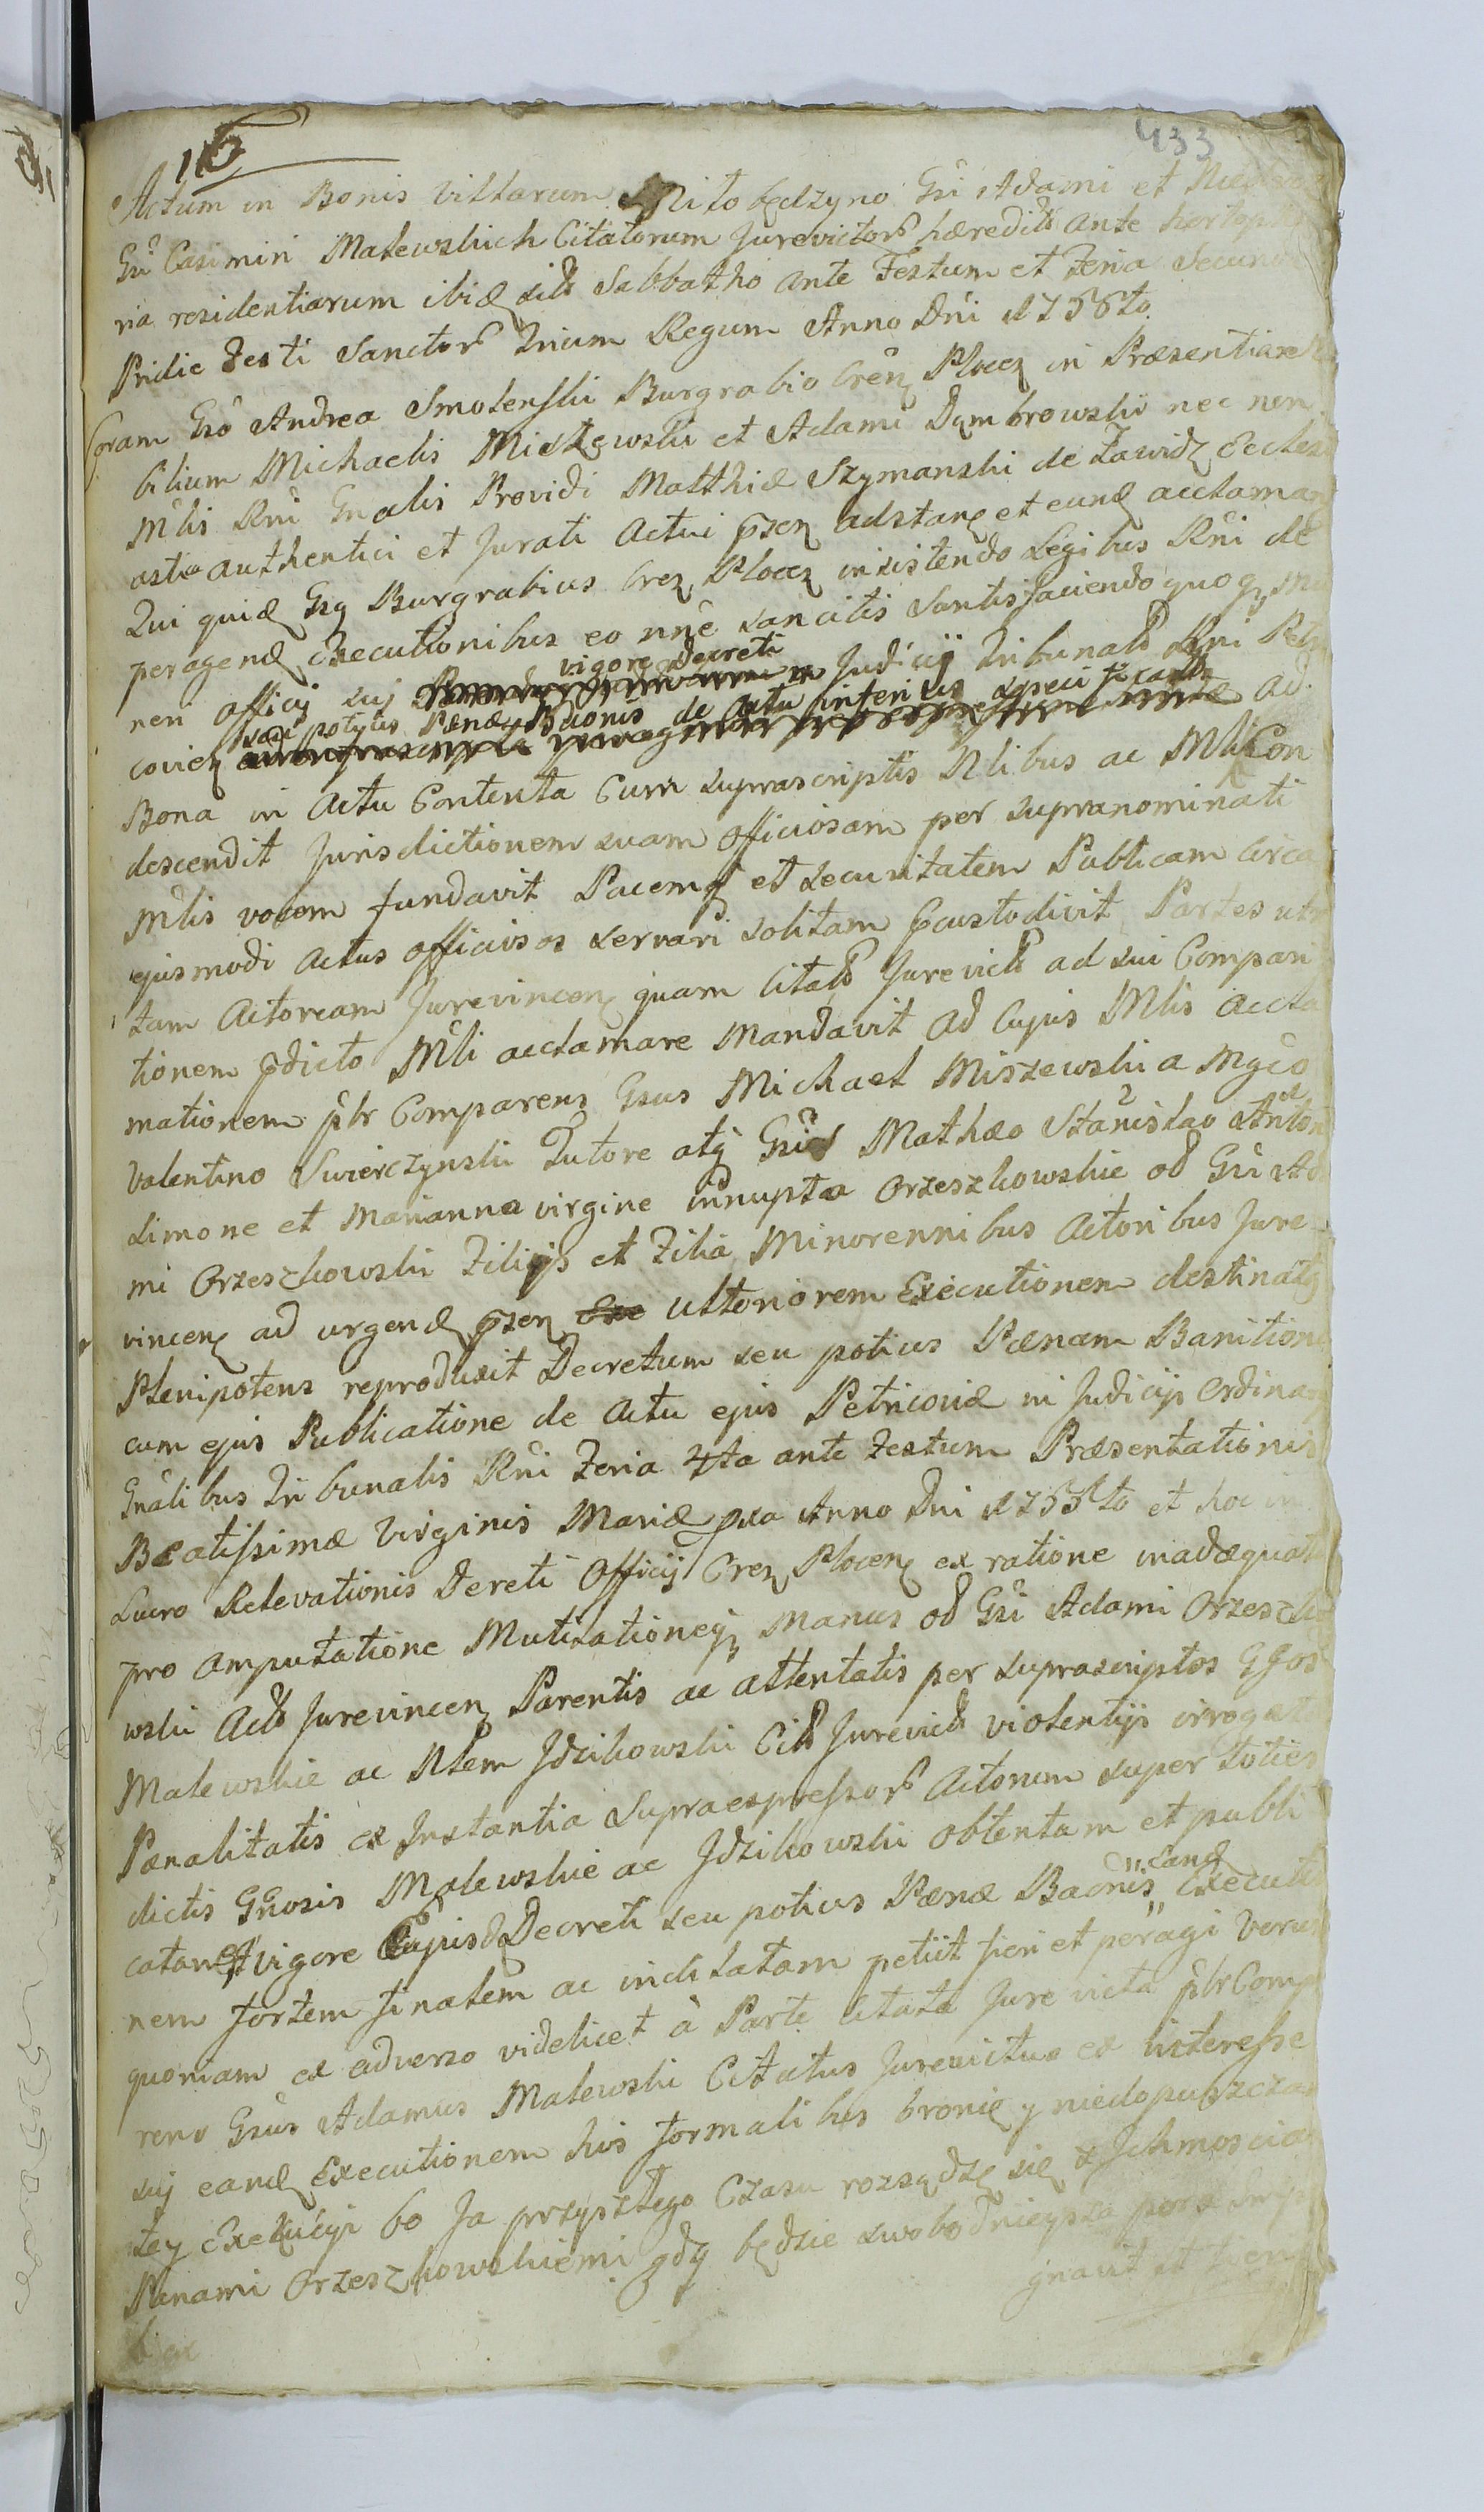 116
433
Actum in Bonis Villarum Nitobądzyno Gsi Adami et
Gsi Casimiri Malewskich Citatorum Jurevictor hæredit ante
ria residentiarum ibid sit Sabbatho ante Festum et Feria Secunda
Pridie Festi Sanctor Trium Regum Anno Dni 1756to
Coram Gso Andrea Smolenski Burgrabio Cren Plocen in Præsentia
bilium Michaelis Miszewski et Adami Dąmbrowski nec non
Mlis Rni Gnalis Providi Matthiæ Szymanski de Zawidz Eccles
astica authentici et Jurati Actui psen adstanę et eund acclaman
Qui quid Gsg Burgrabius Cren Plocen insistendo Legibus Rni de
peragend Executionibus eo nne sancitis Santisfaciendo quoq Mu
neri officij sui vigore Decreti Judicij Tribunal Rni Petri
covien seu potius Pænæ Bnonis de Actu inferius specificand ad
Bona in Actu Contenta Cum suprascriptis Nlibus ac Mli Con
descendit Jurisdictionem suam officiosam per supranominati
Mlis vocem fundavit Pacemq et securitatem Publicam circa
ejusmodi Actus officiosos servari solitam Ccustodivit Partes utr
tam Actoream Jurevincen quam Citat Jurevict ad sui Compari
tionem pdicto Mli acclamare Mandavit Ad Cujus Mlis accla
mationem plr Comparens Gsus Michael Miszewski a Mgco
Valentino Swierczynski Tutore atq Gsis Mathæo Stanislao Anton
Simone et Marianna virgine innupta Orzeszkowskie od Gsi Ada
mi Orzeszkowski Filijs et Filia Minorennibus Actoribus Jure
vincen ad urgend psen Exe ulteriorem Executionem destinatq
Plenipotens reproduxit Decretum seu potius Pænam Banitionis
cum ejus Publicatione de Actu ejus Petricoviæ in Judicijs Ordinar
Gnalibus Tribunalis Rni Feria 4ta ante Festum Præsentationis
Beatissimæ Virginis Mariæ pxa Anno Dni 1755to et hoc in
Lucro Relevationis Dereti Officij Cren Plocen ex ratione inadæquat
pro amputatione Mutilationeq Manus od Gsi Adami Orzeszko
wski Act Jurevincen Parentis ac attentatis per suprascriptos GGos
Malewskie ac Nlem Jdzikowski Cit Jurevict violentijs irrogat
Pænalitatis ex Instantia Supraexpressor Actorum super toties
dictis GGnosis Malewskie ac Jdzikowski obtentam et publi
catam Et vigore Cujusd Decreti seu potius Pænæ Bacnis cand Executio
nem fortem finalem ac inclitatam petiit fieri et peragi Verum
quoniam ex adverso videlicet à Parte Citata Jurevicta plr Compa
rens Gsus Adamus Malewski Citatus Jurevictus ex interesse
suj eand Executionem his formalibus bronię y niedopuszczam
tey Exekucyi bo Ja przyszłego Czasu rozsądzę się z Jchmoscia
Panami Orzeszkowskiemi gdy będzie swobodnieysza pora